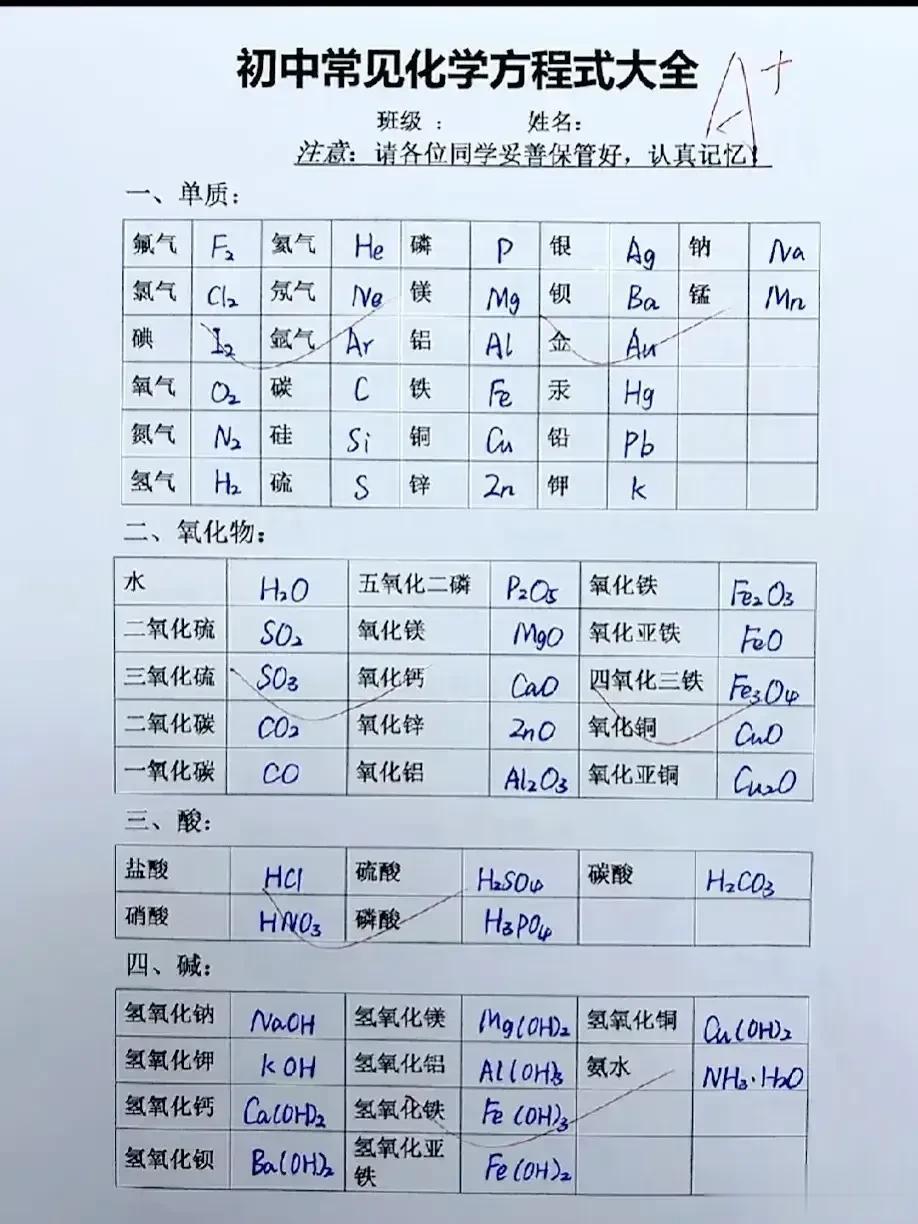 初中常见化学方程式大全 A+
班级： 姓名：
注意：请各位同学妥善保管好，认真记忆！
一、单质：
氟气 F₂ 氦气 He 磷 P 银 Ag 钠 Na
氯气 Cl₂ 氖气 Ne 镁 Mg 钡 Ba 锰 Mn
碘 I₂ 氩气 Ar 铝 Al 金 Au
氧气 O₂ 碳 C 铁 Fe 汞 Hg
氮气 N₂ 硅 Si 铜 Cu 铅 Pb
氢气 H₂ 硫 S 锌 Zn 钾 K
二、氧化物：
水 H₂O 五氧化二磷 P₂O₅ 氧化铁 Fe₂O₃
二氧化硫 SO₂ 氧化镁 MgO 氧化亚铁 FeO
三氧化硫 SO₃ 氧化钙 CaO 四氧化三铁 Fe₃O₄
二氧化碳 CO₂ 氧化锌 ZnO 氧化铜 CuO
一氧化碳 CO 氧化铝 Al₂O₃ 氧化亚铜 Cu₂O
三、酸：
盐酸 HCl 硫酸 H₂SO₄ 碳酸 H₂CO₃
硝酸 HNO₃ 磷酸 H₃PO₄
四、碱：
氢氧化钠 NaOH 氢氧化镁 Mg(OH)₂ 氢氧化铜 Cu(OH)₂
氢氧化钾 KOH 氢氧化铝 Al(OH)₃ 氨水 NH₃·H₂O
氢氧化钙 Ca(OH)₂ 氢氧化铁 Fe(OH)₃
氢氧化钡 Ba(OH)₂ 氢氧化亚铁 Fe(OH)₂